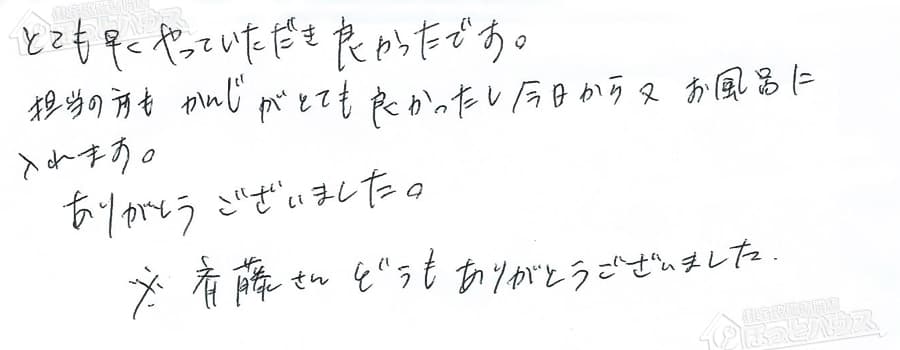 とても早くやっていただき良かったです。
担当の方も かんじがとても良かったし今日から又 お風呂に
入れます。
ありがとうございました。
※ 斉藤さん どうもありがとうございました.